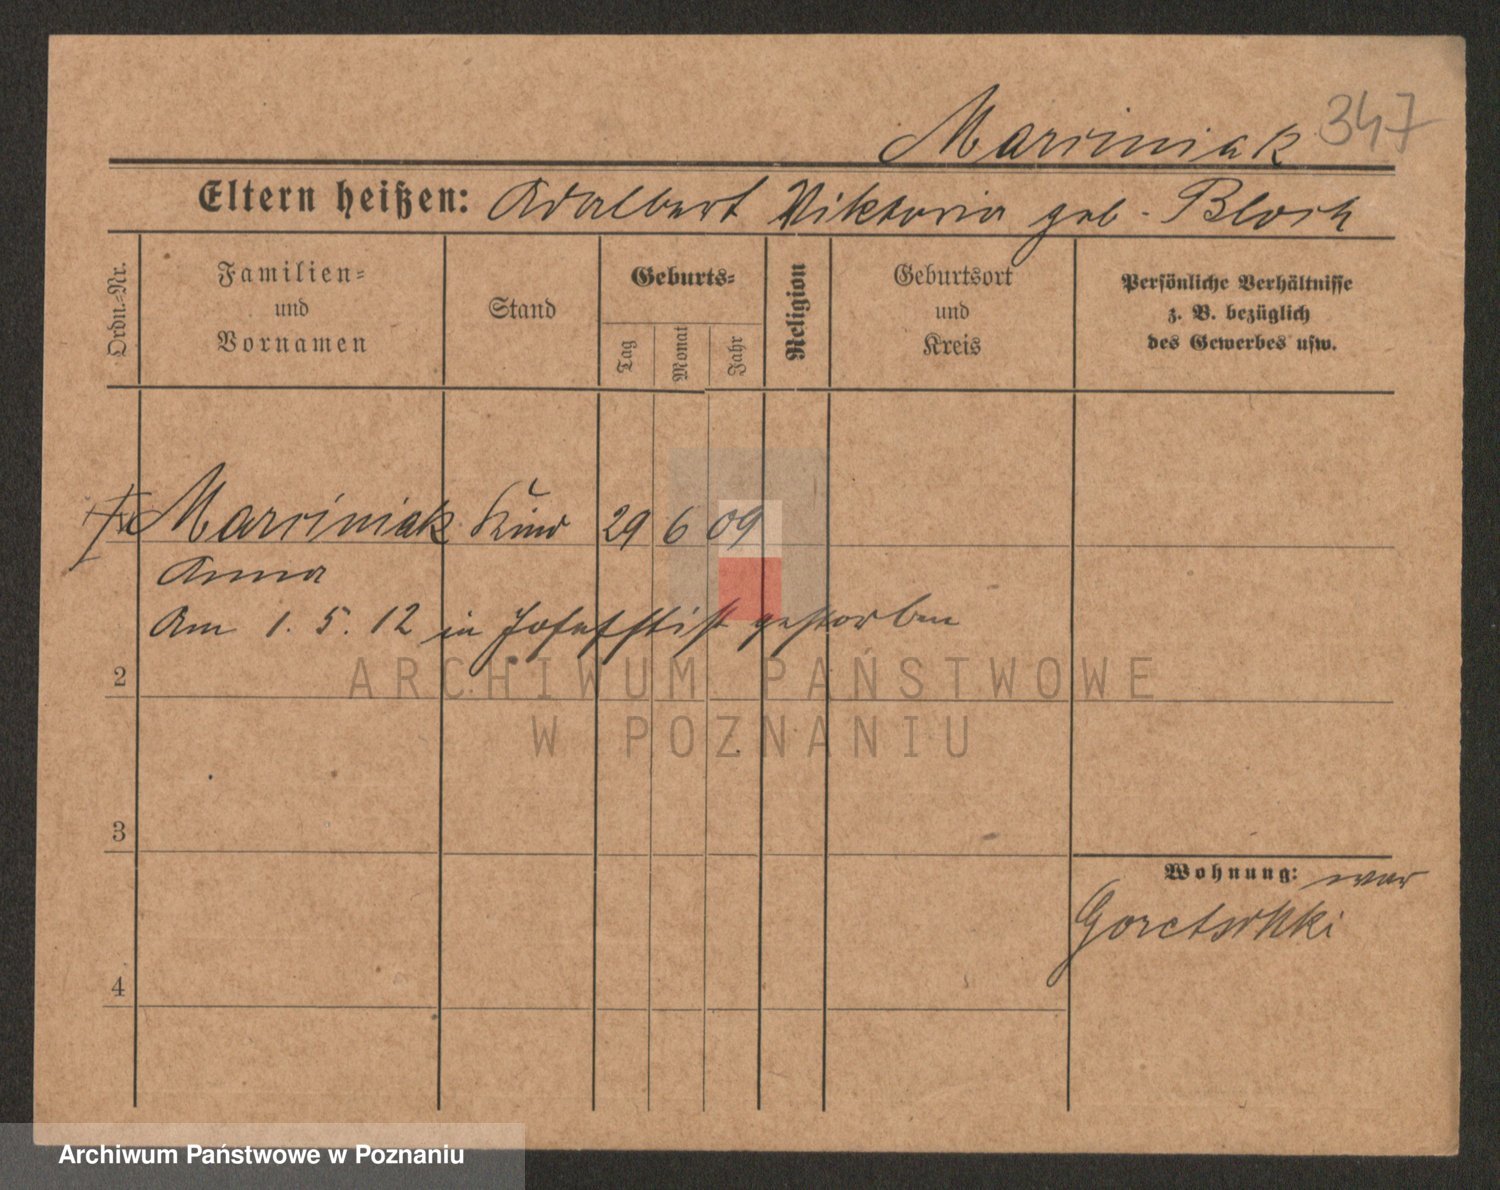 Marciniak 347
Eltern heißen: Adalbert Viktoria geb. Bloch
Ordn.=Nr.
Familien=
und
Vornamen
Stand
Geburts=
Tag
Monat
Jahr
Religion
Geburtsort
und
Kreis
Persönliche Verhältnisse
z. B. bezüglich
des Gewerbes usw.
Marciniak Kind 29 6 09
Anna
Am 1. 5. 12 in Josefstift gestorben
2
3
4
Wohnung: war
Goretschki
ARCHIWUM PAŃSTWOWE
W POZNANIU
Archiwum Państwowe w Poznaniu